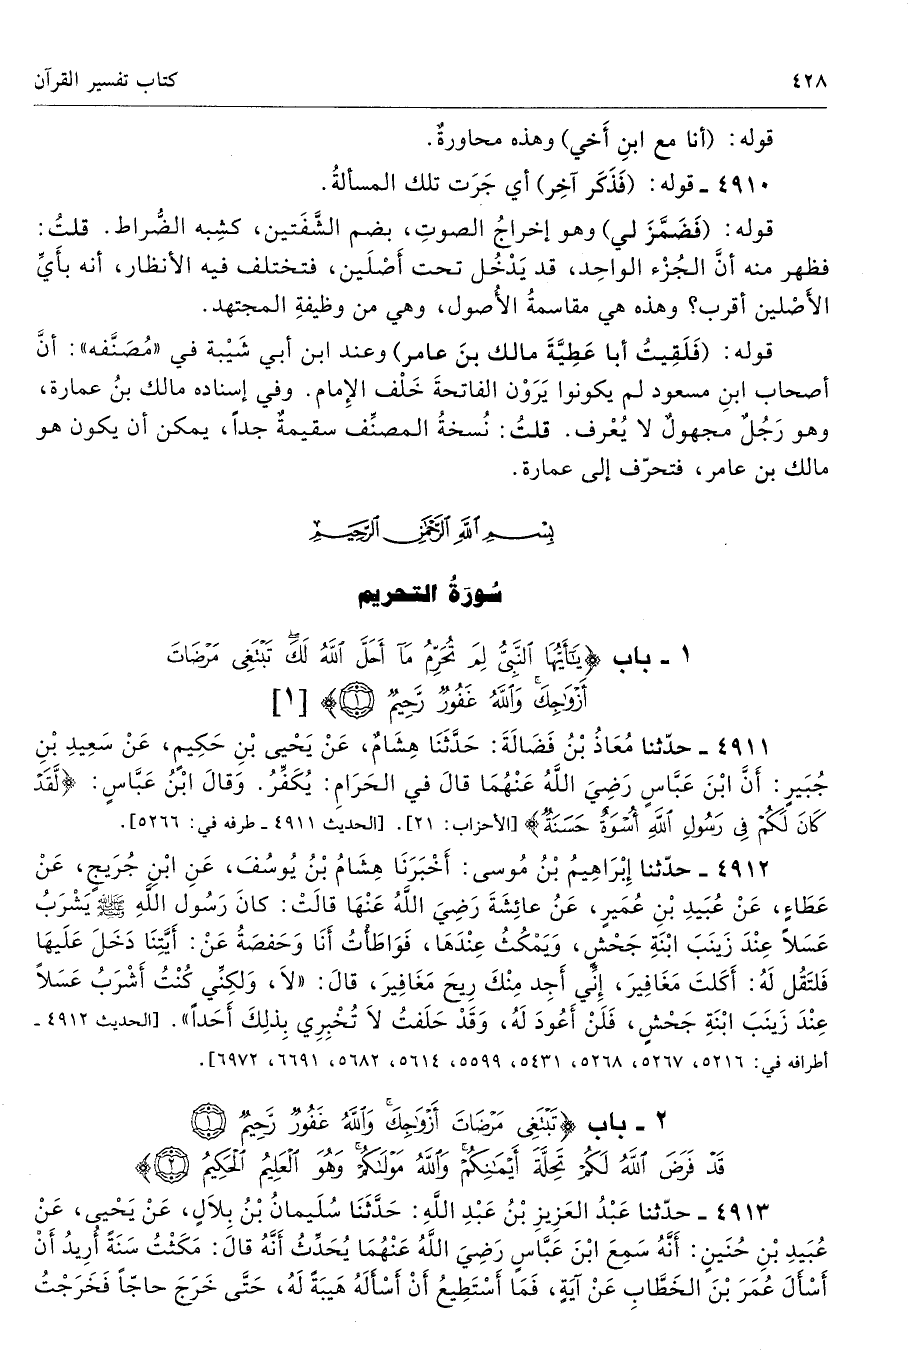 ٤٢٨ كتاب تفسير القرآن
قوله: (أنا مع ابنِ أَخي) وهذه محاورةٌ.
٤٩١٠ ـ قوله: (فَذَكَر آخِر) أي جَرَت تلك المسألةُ.
قوله: (فَضَمَّزَ لي) وهو إخراجُ الصوتِ، بضم الشَّفَتين، كشِبه الضُّراط. قلتُ:
فظهر منه أنَّ الجُزْء الواحِد، قد يَدْخُل تحت أَصْلَين، فتختلف فيه الأنظار، أنه بأَيِّ
الأَصْلين أقرب؟ وهذه هي مقاسمةُ الأُصول، وهي من وظيفةِ المجتهد.
قوله: (فَلَقِيتُ أبا عَطِيَّةَ مالك بنَ عامر) وعند ابن أبي شَيْبة في «مُصَنَّفه»: أنَّ
أصحاب ابنِ مسعود لم يكونوا يَرَوْن الفاتحةَ خَلْف الإِمام. وفي إسناده مالك بنُ عمارة،
وهو رَجُلٌ مجهولٌ لا يُعْرف. قلتُ: نُسخةُ المصنِّف سقيمةٌ جداً، يمكن أن يكون هو
مالك بن عامر، فتحرّف إلى عمارة.
بِسْمِ ٱللَّهِ ٱلرَّحْمَٰنِ ٱلرَّحِيمِ
سُورَةُ التحريم
١ ـ باب ﴿يَٰٓأَيُّهَا ٱلنَّبِىُّ لِمَ تُحَرِّمُ مَآ أَحَلَّ ٱللَّهُ لَكَ ۖ تَبْتَغِى مَرْضَاتَ
أَزْوَٰجِكَ ۚ وَٱللَّهُ غَفُورٌ رَّحِيمٌ ١﴾ [١]
٤٩١١ ـ حدّثنا مُعَاذُ بْنُ فَضَالَةَ: حَدَّثَنَا هِشَامٌ، عَنْ يَحْيى بْنِ حَكِيمٍ، عَنْ سَعِيدِ بْنِ
جُبَيرٍ: أَنَّ ابْنَ عَبَّاسٍ رَضِيَ اللَّهُ عَنْهُمَا قالَ في الحَرَامِ: يُكَفِّرُ. وَقالَ ابْنُ عَبَّاسٍ: ﴿لَّقَدْ
كَانَ لَكُمْ فِى رَسُولِ ٱللَّهِ أُسْوَةٌ حَسَنَةٌ﴾ [الأحزاب: ٢١]. [الحديث ٤٩١١ ـ طرفه في: ٥٢٦٦].
٤٩١٢ ـ حدّثنا إِبْرَاهِيمُ بْنُ مُوسى: أَخْبَرَنَا هِشَامُ بْنُ يُوسُفَ، عَنِ ابْنِ جُرَيجٍ، عَنْ
عَطَاءٍ، عَنْ عُبَيدِ بْنِ عُمَيرٍ، عَنْ عائِشَةَ رَضِيَ اللَّهُ عَنْهَا قالَتْ: كانَ رَسُول اللَّهِ ﷺ يَشْرَبُ
عَسَلاً عِنْدَ زَينَبَ ابْنَةِ جَحْشٍ، وَيَمْكُثُ عِنْدَهَا، فَوَاطَأْتُ أَنَا وَحَفصَةُ عَنْ: أَيَّتُنَا دَخَلَ عَلَيهَا
فَلتَقُل لَهُ: أَكَلتَ مَغَافِيرَ، إِنِّي أَجِد مِنْكَ رِيحَ مَغَافِيرَ، قالَ: «لاَ، وَلكِنِّي كُنْتُ أَشْرَبُ عَسَلاً
عِنْدَ زَينَبَ ابْنَةِ جَحْشٍ، فَلَنْ أَعُودَ لَهُ، وَقَدْ حَلَفتُ لاَ تُخْبِرِي بِذلِكَ أَحَداً». [الحديث ٤٩١٢ ـ
أطرافه في: ٥٢١٦، ٥٢٦٧، ٥٢٦٨، ٥٤٣١، ٥٥٩٩، ٥٦١٤، ٥٦٨٢، ٦٦٩١، ٦٩٧٢].
٢ ـ باب ﴿تَبْتَغِى مَرْضَاتَ أَزْوَٰجِكَ ۚ وَٱللَّهُ غَفُورٌ رَّحِيمٌ ١
قَدْ فَرَضَ ٱللَّهُ لَكُمْ تَحِلَّةَ أَيْمَٰنِكُمْ ۚ وَٱللَّهُ مَوْلَىٰكُمْ ۖ وَهُوَ ٱلْعَلِيمُ ٱلْحَكِيمُ ٢﴾
٤٩١٣ ـ حدّثنا عَبْدُ العَزِيزِ بْنُ عَبْدِ اللَّهِ: حَدَّثَنَا سُلَيمانُ بْنُ بِلاَلٍ، عَنْ يَحْيى، عَنْ
عُبَيدِ بْنِ حُنَينٍ: أَنَّهُ سَمِعَ ابْنَ عَبَّاسٍ رَضِيَ اللَّهُ عَنْهُمَا يُحَدِّثُ أَنَّهُ قالَ: مَكَثْتُ سَنَةً أُرِيدُ أَنْ
أَسْأَلَ عُمَرَ بْنَ الخَطَّابِ عَنْ آيَةٍ، فَمَا أَسْتَطِيعُ أَنْ أَسْأَلَهُ هَيبَةً لَهُ، حَتَّى خَرَجَ حاجّاً فَخَرَجْتُ